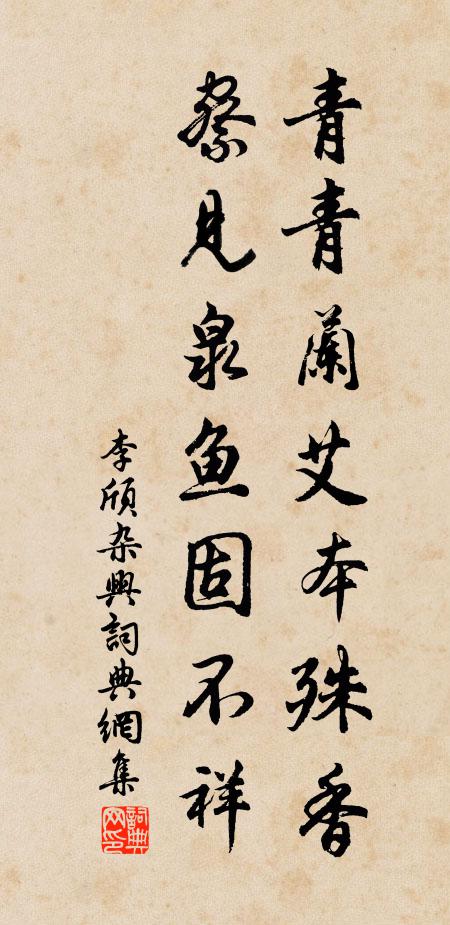 青青蘭艾本殊香
察見泉魚固不祥
李頎杂興詞典網集
詞典网印